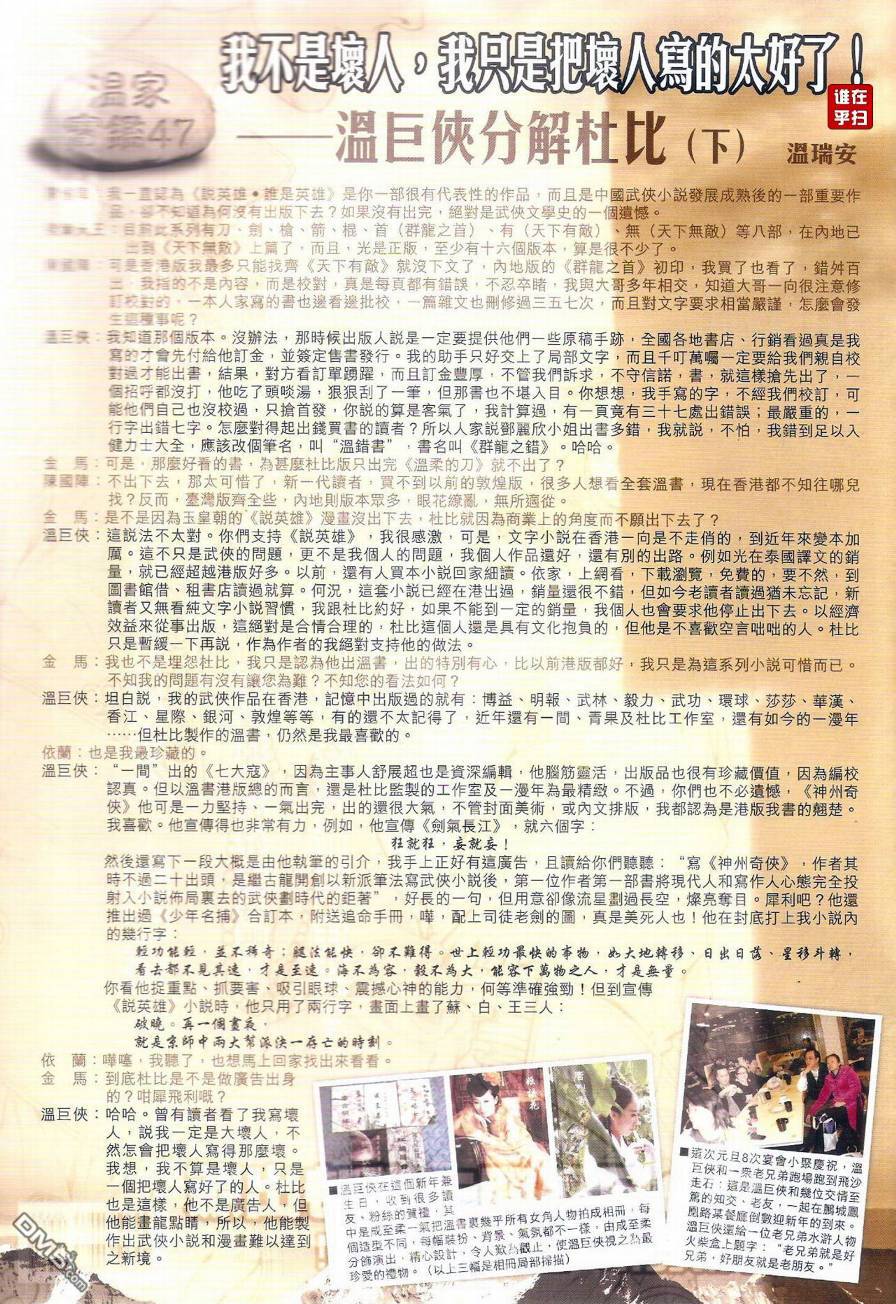 我不是壞人，我只是把壞人寫的太好了！
誰在
乎扫
溫家
寶鏡47
——溫巨俠分解杜比（下） 溫瑞安
我一直認為《說英雄•誰是英雄》是你一部很有代表性的作品，而且是中國武俠小說發展成熟後的一部重要作
品，卻不知道為何沒有出版下去？如果沒有出完，絕對是武俠文學史的一個遺憾。
目前此系列有刀、劍、槍、箭、棍、首（群龍之首）、有（天下有敵）、無（天下無敵）等八部，在內地已
出到《天下無敵》上篇了，而且，光是正版，至少有十六個版本，算是很不少了。
陳國陣：可是香港版我最多只能找齊《天下有敵》就沒下文了，內地版的《群龍之首》初印，我買了也看了，錯舛百
出，我指的不是內容，而是校對，真是每頁都有錯誤，不忍卒睹，我與大哥多年相交，知道大哥一向很注意修
訂校對的，一本人家寫的書也邊看邊批校，一篇雜文也刪修過三五七次，而且對文字要求相當嚴謹，怎麼會發
生這種事呢？
溫巨俠：我知道那個版本。沒辦法，那時候出版人說是一定要提供他們一些原稿手跡，全國各地書店、行銷看過真是我
寫的才會先付給他訂金，並簽定售書發行。我的助手只好交上了局部文字，而且千叮萬囑一定要給我們親自校
對過才能出書，結果，對方看訂單踴躍，而且訂金豐厚，不管我們訴求，不守信諾，書，就這樣搶先出了，一
個招呼都沒打，他吃了頭啖湯，狠狠刮了一筆，但那書也不堪入目。你想想，我手寫的字，不經我們校訂，可
能他們自己也沒校過，只搶首發，你說的算是客氣了，我計算過，有一頁竟有三十七處出錯誤；最嚴重的，一
行字出錯七字。怎麼對得起出錢買書的讀者？所以人家說鄧麗欣小姐出書多錯，我就說，不怕，我錯到足以入
健力士大全，應該改個筆名，叫“溫錯書”，書名叫《群龍之錯》。哈哈。
金　馬：可是，那麼好看的書，為甚麼杜比版只出完《溫柔的刀》就不出了？
陳國陣：不出下去，那太可惜了，新一代讀者，買不到以前的敦煌版，很多人想看全套溫書，現在香港都不知往哪兒
找？反而，臺灣版齊全些，內地則版本眾多，眼花繚亂，無所適從。
金　馬：是不是因為玉皇朝的《說英雄》漫畫沒出下去，杜比就因為商業上的角度而不願出下去了？
溫巨俠：這說法不太對。你們支持《說英雄》，我很感激，可是，文字小說在香港一向是不走俏的，到近年來變本加
厲。這不只是武俠的問題，更不是我個人的問題，我個人作品還好，還有別的出路。例如光在泰國譯文的銷
量，就已經超越港版好多。以前，還有人買本小說回家細讀。依家，上網看，下載瀏覽，免費的，要不然，到
圖書館借、租書店讀過就算。何況，這套小說已經在港出過，銷量還很不錯，但如今老讀者讀過猶未忘記，新
讀者又無看純文字小說習慣，我跟杜比約好，如果不能到一定的銷量，我個人也會要求他停止出下去。以經濟
效益來從事出版，這絕對是合情合理的，杜比這個人還是具有文化抱負的，但他是不喜歡空言咄咄的人。杜比
只是暫緩一下再說，作為作者的我絕對支持他的做法。
金　馬：我也不是埋怨杜比，我只是認為他出溫書，出的特別有心，比以前港版都好，我只是為這系列小說可惜而已。
不知我的問題有沒有讓您為難？不知您的看法如何？
溫巨俠：坦白說，我的武俠作品在香港，記憶中出版過的就有：博益、明報、武林、毅力、武功、環球、莎莎、華漢、
香江、星際、銀河、敦煌等等，有的還不太記得了，近年還有一間、青果及杜比工作室，還有如今的一漫年
……但杜比製作的溫書，仍然是我最喜歡的。
依蘭：也是我最珍藏的。
溫巨俠：“一間”出的《七大寇》，因為主事人舒展超也是資深編輯，他腦筋靈活，出版品也很有珍藏價值，因為編校
認真。但以溫書港版總的而言，還是杜比監製的工作室及一漫年為最精緻。不過，你們也不必遺憾，《神州奇
俠》他可是一力堅持、一氣出完，出的還很大氣，不管封面美術，或內文排版，我都認為是港版我書的翹楚。
我喜歡。他宣傳得也非常有力，例如，他宣傳《劍氣長江》，就六個字：
狂就狂，妄就妄！
然後還寫下一段大概是由他執筆的引介，我手上正好有這廣告，且讀給你們聽聽：“寫《神州奇俠》，作者其
時不過二十出頭，是繼古龍開創以新派筆法寫武俠小說後，第一位作者第一部書將現代人和寫作人心態完全投
射入小說佈局裏去的武俠劃時代的鉅著”，好長的一句，但用意卻像流星劃過長空，燦亮奪目。犀利吧？他還
推出過《少年名捕》合訂本，附送追命手冊，嘩，配上司徒老劍的圖，真是美死人也！他在封底打上我小說內
的幾行字：
輕功能輕，並不稀奇；腿法能快，卻不難得。世上輕功最快的事物，如大地轉移、日出日落、星移斗轉，
看去都不見其速，才是至速。海不為容，毅不為大，能容下萬物之人，才是無量。
你看他捉重點、抓要害、吸引眼球、震撼心神的能力，何等準確強勁！但到宣傳
《說英雄》小說時，他只用了兩行字，畫面上畫了蘇、白、王三人：
破曉。再一個晝夜，
就是京師中兩大幫派決一存亡的時刻。
依　蘭：嘩噻，我聽了，也想馬上回家找出來看看。
金　馬：到底杜比是不是做廣告出身
的？咁犀飛利嘅？
溫巨俠：哈哈。曾有讀者看了我寫壞
人，說我一定是大壞人，不
然怎會把壞人寫得那麼壞。
我想，我不算是壞人，只是
一個把壞人寫好了的人。杜比
也是這樣，他不是廣告人，但
他能畫龍點睛，所以，他能製
作出武俠小說和漫畫難以達到
之新境。
■溫巨俠在這個新年兼
生日，收到很多讀
友、粉絲的賀禮，其
中是成至柔一氣把溫書裏幾乎所有女角人物拍成相冊，每
個造型不同，每幅裝扮、背景、氣氛都不一樣，由成至柔
分飾演出，精心設計，令人歎為觀止，使溫巨俠視之為最
珍愛的禮物。（以上三幅是相冊局部掃描）
■這次元旦8次宴會小聚慶祝，溫
巨俠和一眾老兄弟跑場跑到飛沙
走石：這是溫巨俠和幾位交情至
篤的知交、老友，一起在鵬城鳳
凰路某餐廳倒數迎新年的到來。
溫巨俠還給一位老兄弟水滸人物
火柴盒上題字：“老兄弟就是好
兄弟，好朋友就是老朋友。”
DM5.com